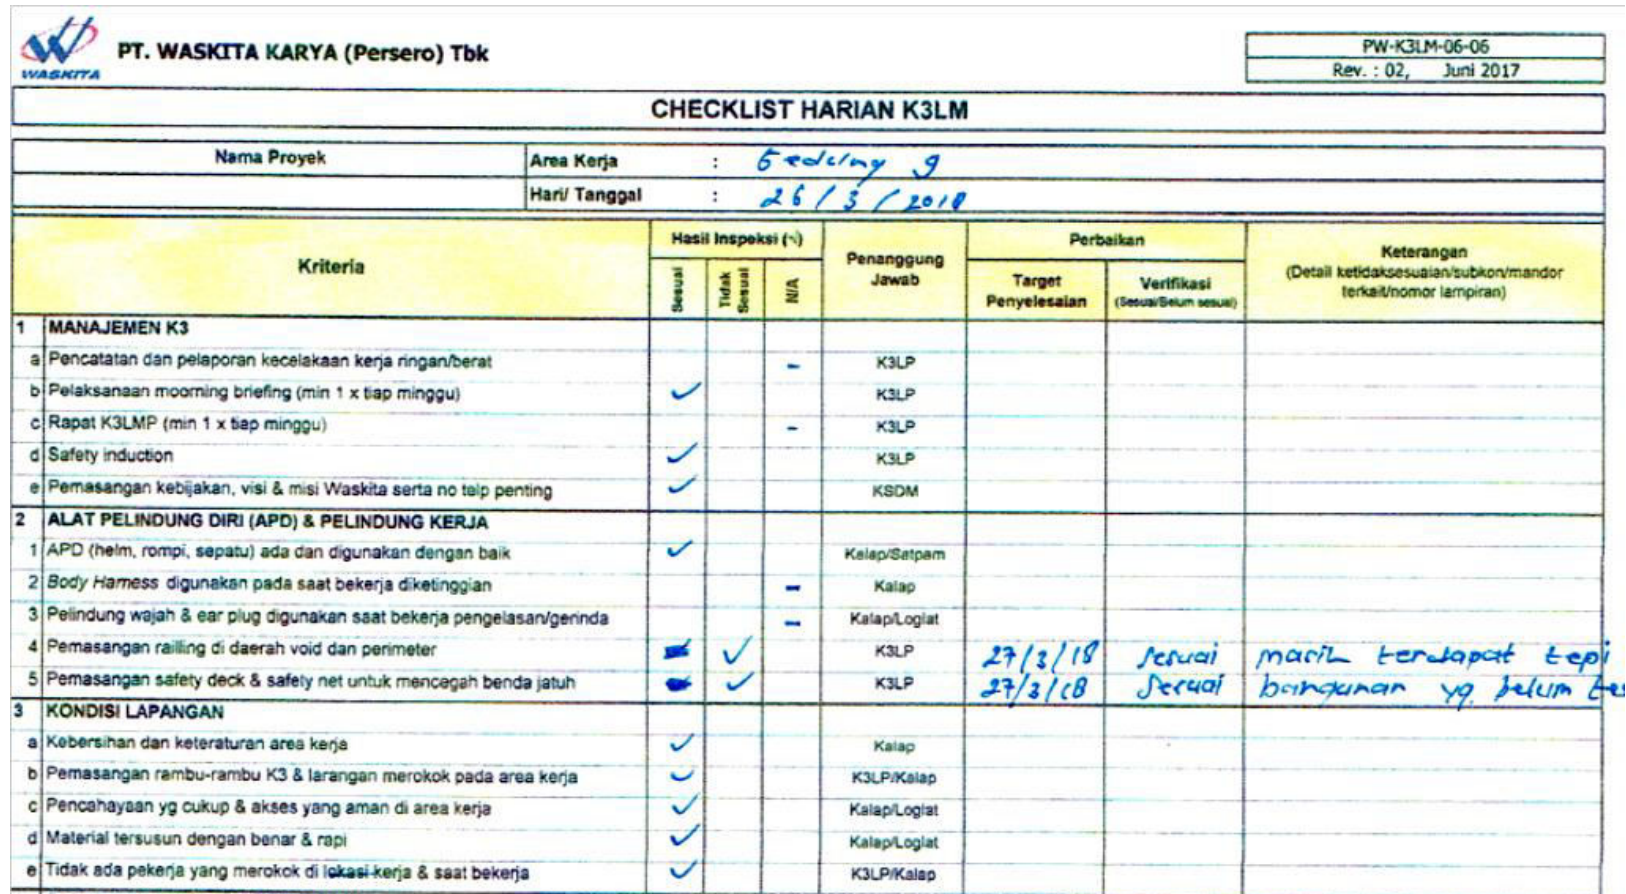 WASKITA
PT. WASKITA KARYA (Persero) Tbk
PW-K3LM-06-06
Rev. : 02, Juni 2017
CHECKLIST HARIAN K3LM
Nama Proyek
Area Kerja :
Hari/ Tanggal : 26/3/2018
Kriteria
Hasil Inspeksi (√)
Sesuai
Tidak Sesuai
N/A
Penanggung Jawab
Perbaikan
Target Penyelesaian
Verifikasi (Sesuai/Belum sesuai)
Keterangan
(Detail ketidaksesuaian/subkon/mandor terkait/nomor lampiran)
1 MANAJEMEN K3
a Pencatatan dan pelaporan kecelakaan kerja ringan/berat - K3LP
b Pelaksanaan moorning briefing (min 1 x tiap minggu) ✓ K3LP
c Rapat K3LMP (min 1 x tiap minggu) - K3LP
d Safety induction ✓ K3LP
e Pemasangan kebijakan, visi & misi Waskita serta no telp penting ✓ KSDM
2 ALAT PELINDUNG DIRI (APD) & PELINDUNG KERJA
1 APD (helm, rompi, sepatu) ada dan digunakan dengan baik ✓ Kalap/Satpam
2 Body Harness digunakan pada saat bekerja diketinggian - Kalap
3 Pelindung wajah & ear plug digunakan saat bekerja pengelasan/gerinda - Kalap/Loglat
4 Pemasangan railling di daerah void dan perimeter ✓ K3LP 27/3/18 sesuai masih terdapat tepi
5 Pemasangan safety deck & safety net untuk mencegah benda jatuh ✓ K3LP 27/3/18 sesuai bangunan yg belum
3 KONDISI LAPANGAN
a Kebersihan dan keteraturan area kerja ✓ Kalap
b Pemasangan rambu-rambu K3 & larangan merokok pada area kerja ✓ K3LP/Kalap
c Pencahayaan yg cukup & akses yang aman di area kerja ✓ Kalap/Loglat
d Material tersusun dengan benar & rapi ✓ Kalap/Loglat
e Tidak ada pekerja yang merokok di lokasi kerja & saat bekerja ✓ K3LP/Kalap